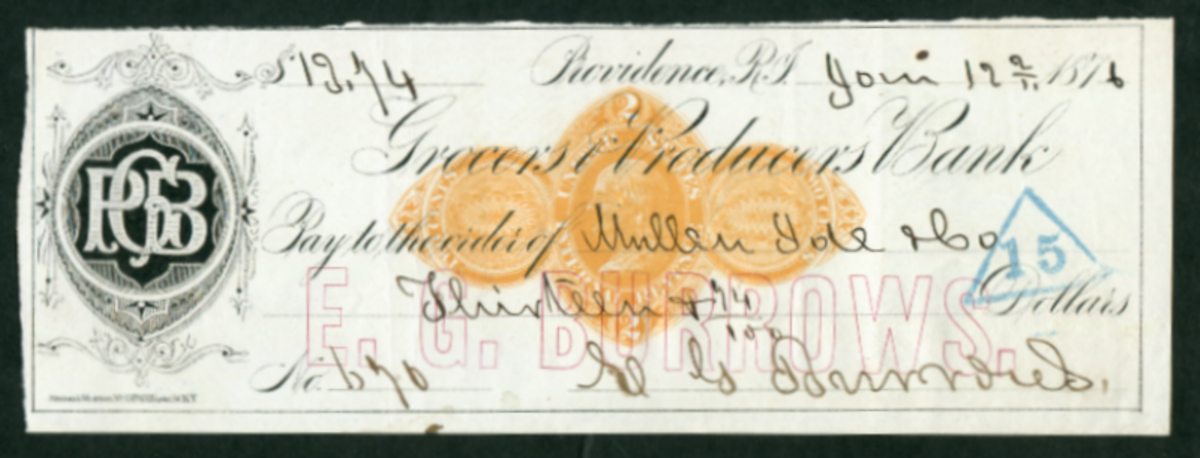 $13.74 Providence, R.I. Jan 12 1876
Grocers & Producers Bank
PGB
Pay to the order of Mullen Ide & Co
15
Thirteen & 74/100 Dollars
E. G. BURROWS.
No. 670 E G Burrows.